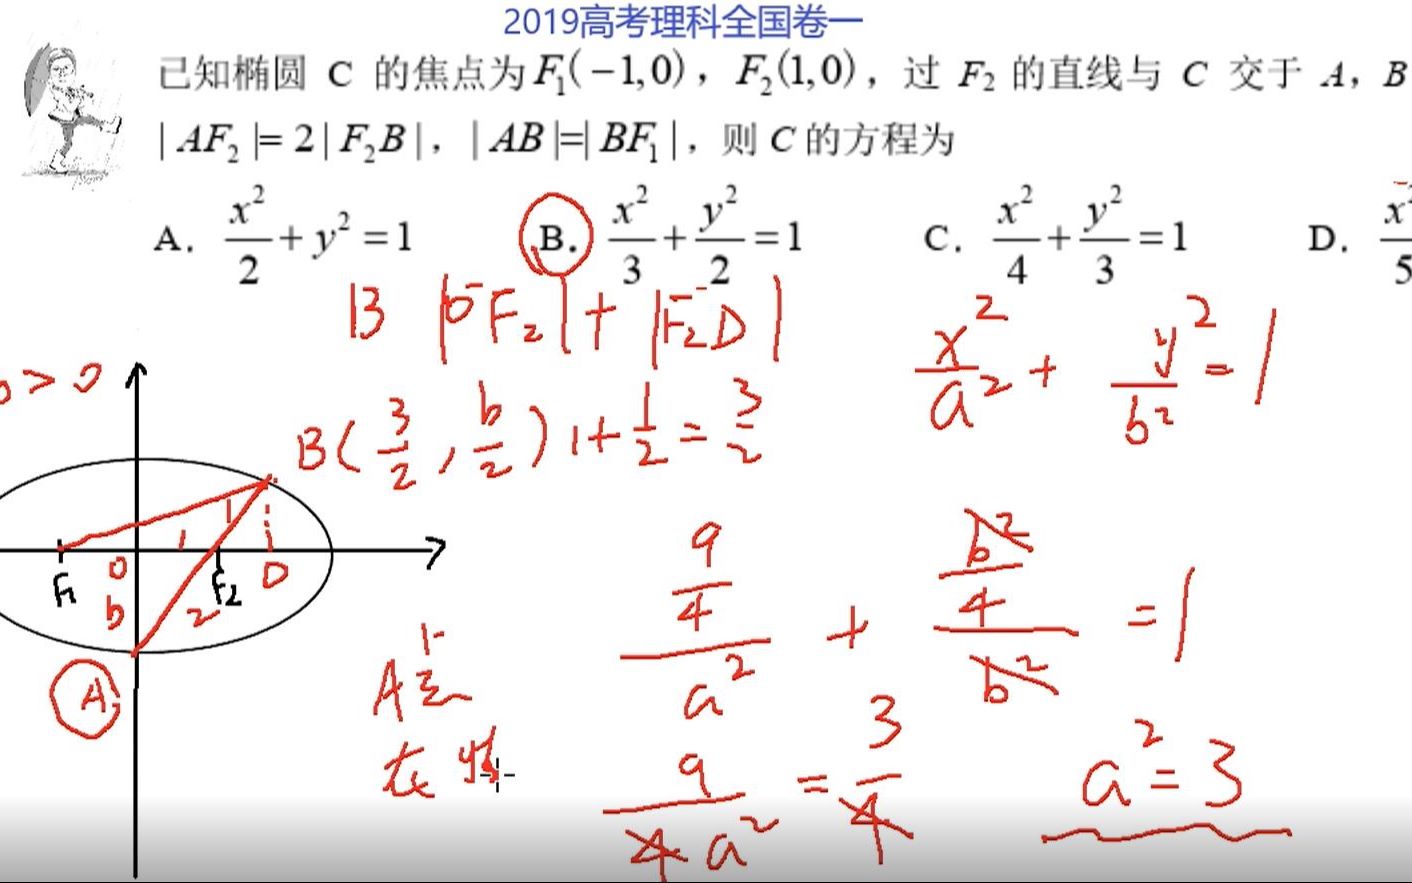 2019高考理科全国卷一
已知椭圆 C 的焦点为 F₁(−1,0)，F₂(1,0)，过 F₂ 的直线与 C 交于 A，B
|AF₂|=2|F₂B|，|AB|=|BF₁|，则 C 的方程为
A. x²/2 + y² = 1 B. x²/3 + y²/2 = 1 C. x²/4 + y²/3 = 1 D. x²/5
B |OF₂| + |F₂D|
x²/a² + y²/b² = 1
b > 0
B(3/2, b/2) 1 + 1/2 = 3/2
1 1
F₁ O F₂ D
b 2
A
A点
在
(9/4)/a² + (b²/4)/b² = 1
9/4a² = 3/4
a² = 3